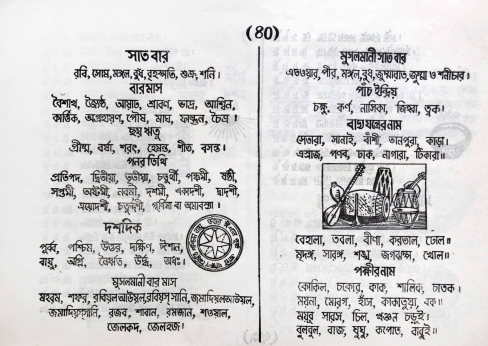 (80)
সাত বার
রবি, সোম, মঙ্গল, বুধ, বৃহস্পতি, শুক্র, শনি।
বার মাস
বৈশাখ, জ্যৈষ্ঠ, আষাঢ়, শ্রাবণ, ভাদ্র, আশ্বিন,
কার্ত্তিক, অগ্রহায়ণ, পৌষ, মাঘ, ফাল্গুন, চৈত্র।
ছয় ঋতু
গ্রীষ্ম, বর্ষা, শরৎ, হেমন্ত, শীত, বসন্ত।
পনর তিথি
প্রতিপদ, দ্বিতীয়া, তৃতীয়া, চতুর্থী, পঞ্চমী, ষষ্ঠী,
সপ্তমী, অষ্টমী, নবমী, দশমী, একাদশী, দ্বাদশী,
ত্রয়োদশী, চতুর্দ্দশী, পূর্ণিমা বা অমাবস্যা।
দশদিক
পূর্ব্ব, পশ্চিম, উত্তর, দক্ষিণ, ঈশান,
বায়ু, অগ্নি, নৈঋত, উর্দ্ধ, অধঃ।
মুসলমানী বার মাস
মহরম, শফর, রবিয়ল আউয়ল, রবিয়স্ সানি, জমাদিয়ল আউয়ল,
জমাদিয়স্ সানি, রজব, শাবান, রমজান, শাওয়াল,
জেলকদ, জেলহজ।
মুসলমানী সাত বার
এতওয়ার, পীর, মঙ্গল, বুধ, জুম্মারাত, জুম্মা ও শনীচার।
পাঁচ ইন্দ্রিয়
চক্ষু, কর্ণ, নাসিকা, জিহ্বা, ত্বক।
বাদ্য যন্ত্রের নাম
সেতারা, সানাই, বাঁশী, তানপুরা, কাড়া।
এস্রাজ, পণব, ঢাক, নাগারা, টিকারা॥
বেহালা, তবলা, বীণা, করতাল, ঢোল॥
মৃদঙ্গ, সারঙ্গ, শঙ্খ, জগঝম্প, খোল॥
পক্ষীর নাম
কোকিল, চকোর, কাক, শালিক, চাতক।
ময়না, মোরগ, হাঁস, কাকাতুয়া, বক॥
ময়ূর সারস, চিল, খঞ্জন চড়ুই।
বুলবুল, বাজ, ঘুঘু, কপোত, বাবুই॥